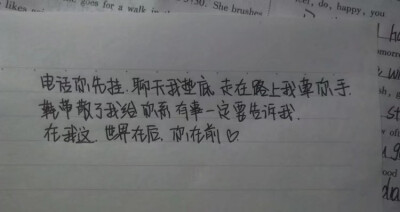 likes
goes for a walk in
:30. She brushes
or, do, happy, you
电话你先挂.聊天我垫底.走在路上我牵你手
鞋带散了我给你系 有事一定要告诉我.
在我这.世界在后.你在前♡